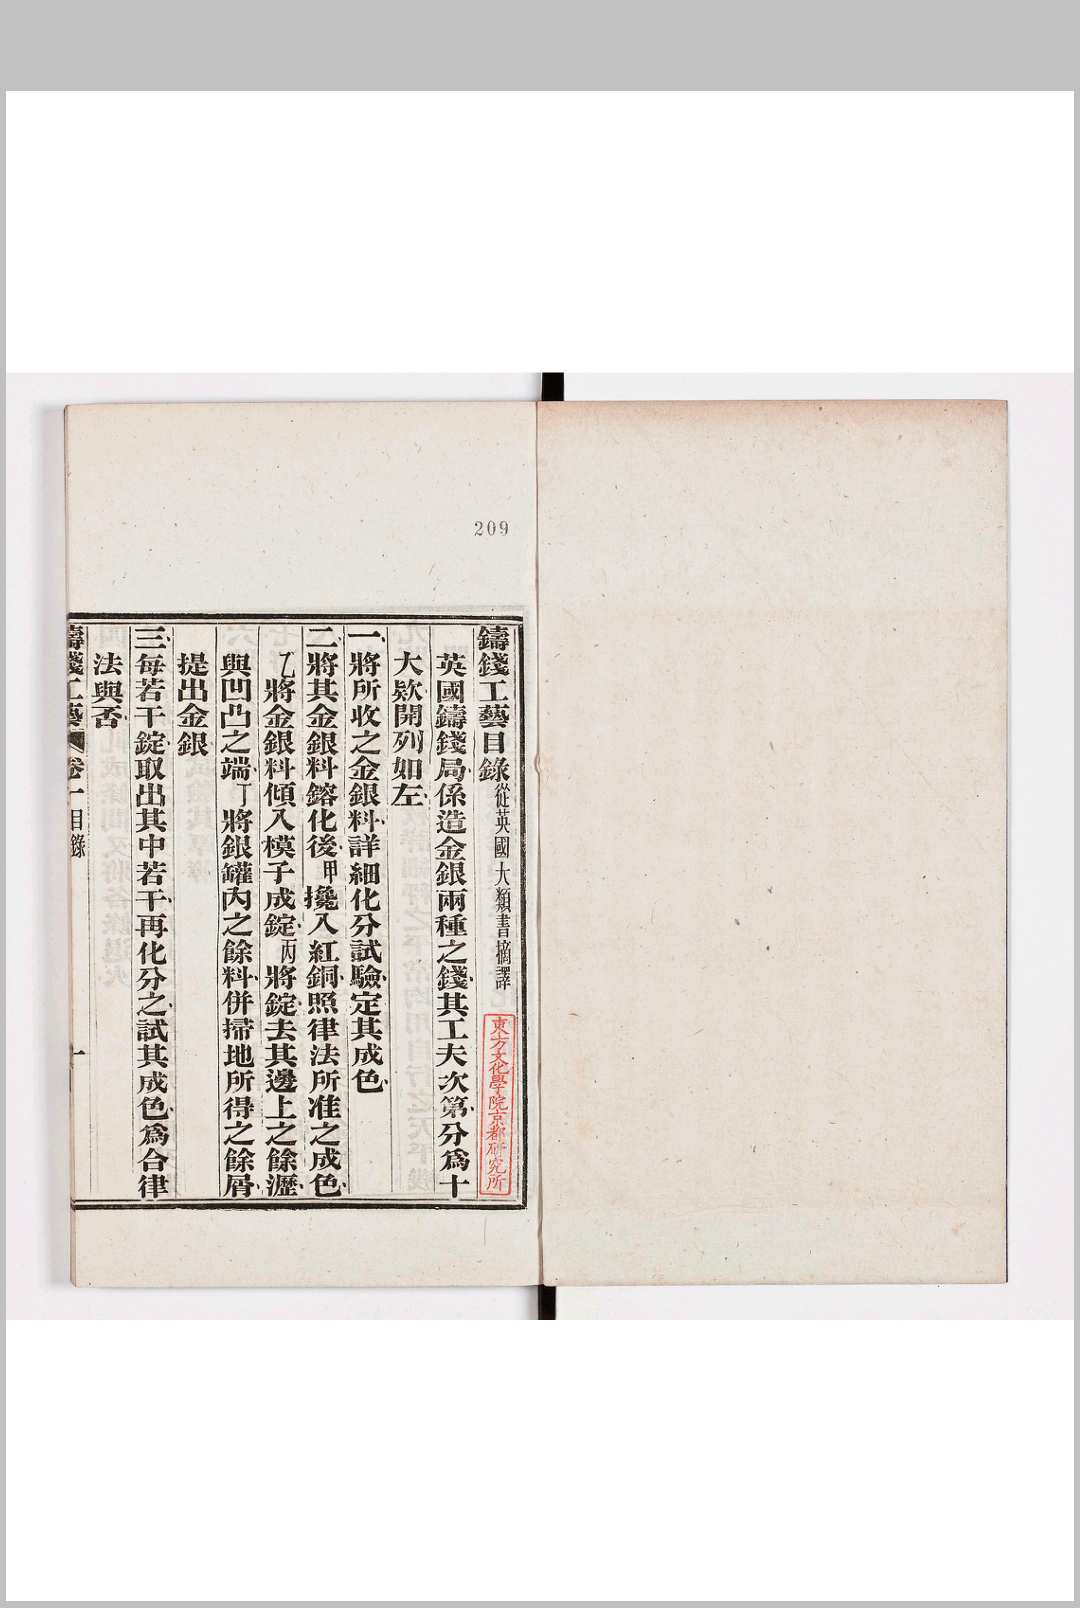 209
鑄錢工藝目錄從英國大類書摘譯
東方文化學院京都研究所
英國鑄錢局係造金銀兩種之錢其工夫次第分爲十
大欵開列如左
一將所收之金銀料詳細化分試驗定其成色
二將其金銀料鎔化後甲攙入紅銅照律法所准之成色
乙將金銀料傾入模子成錠丙將錠去其邊上之餘瀝
與凹凸之端丁將銀罐內之餘料併掃地所得之餘屑
提出金銀
三每若干錠取出其中若干再化分之試其成色爲合律
法與否
鑄錢工藝 卷一目錄 一